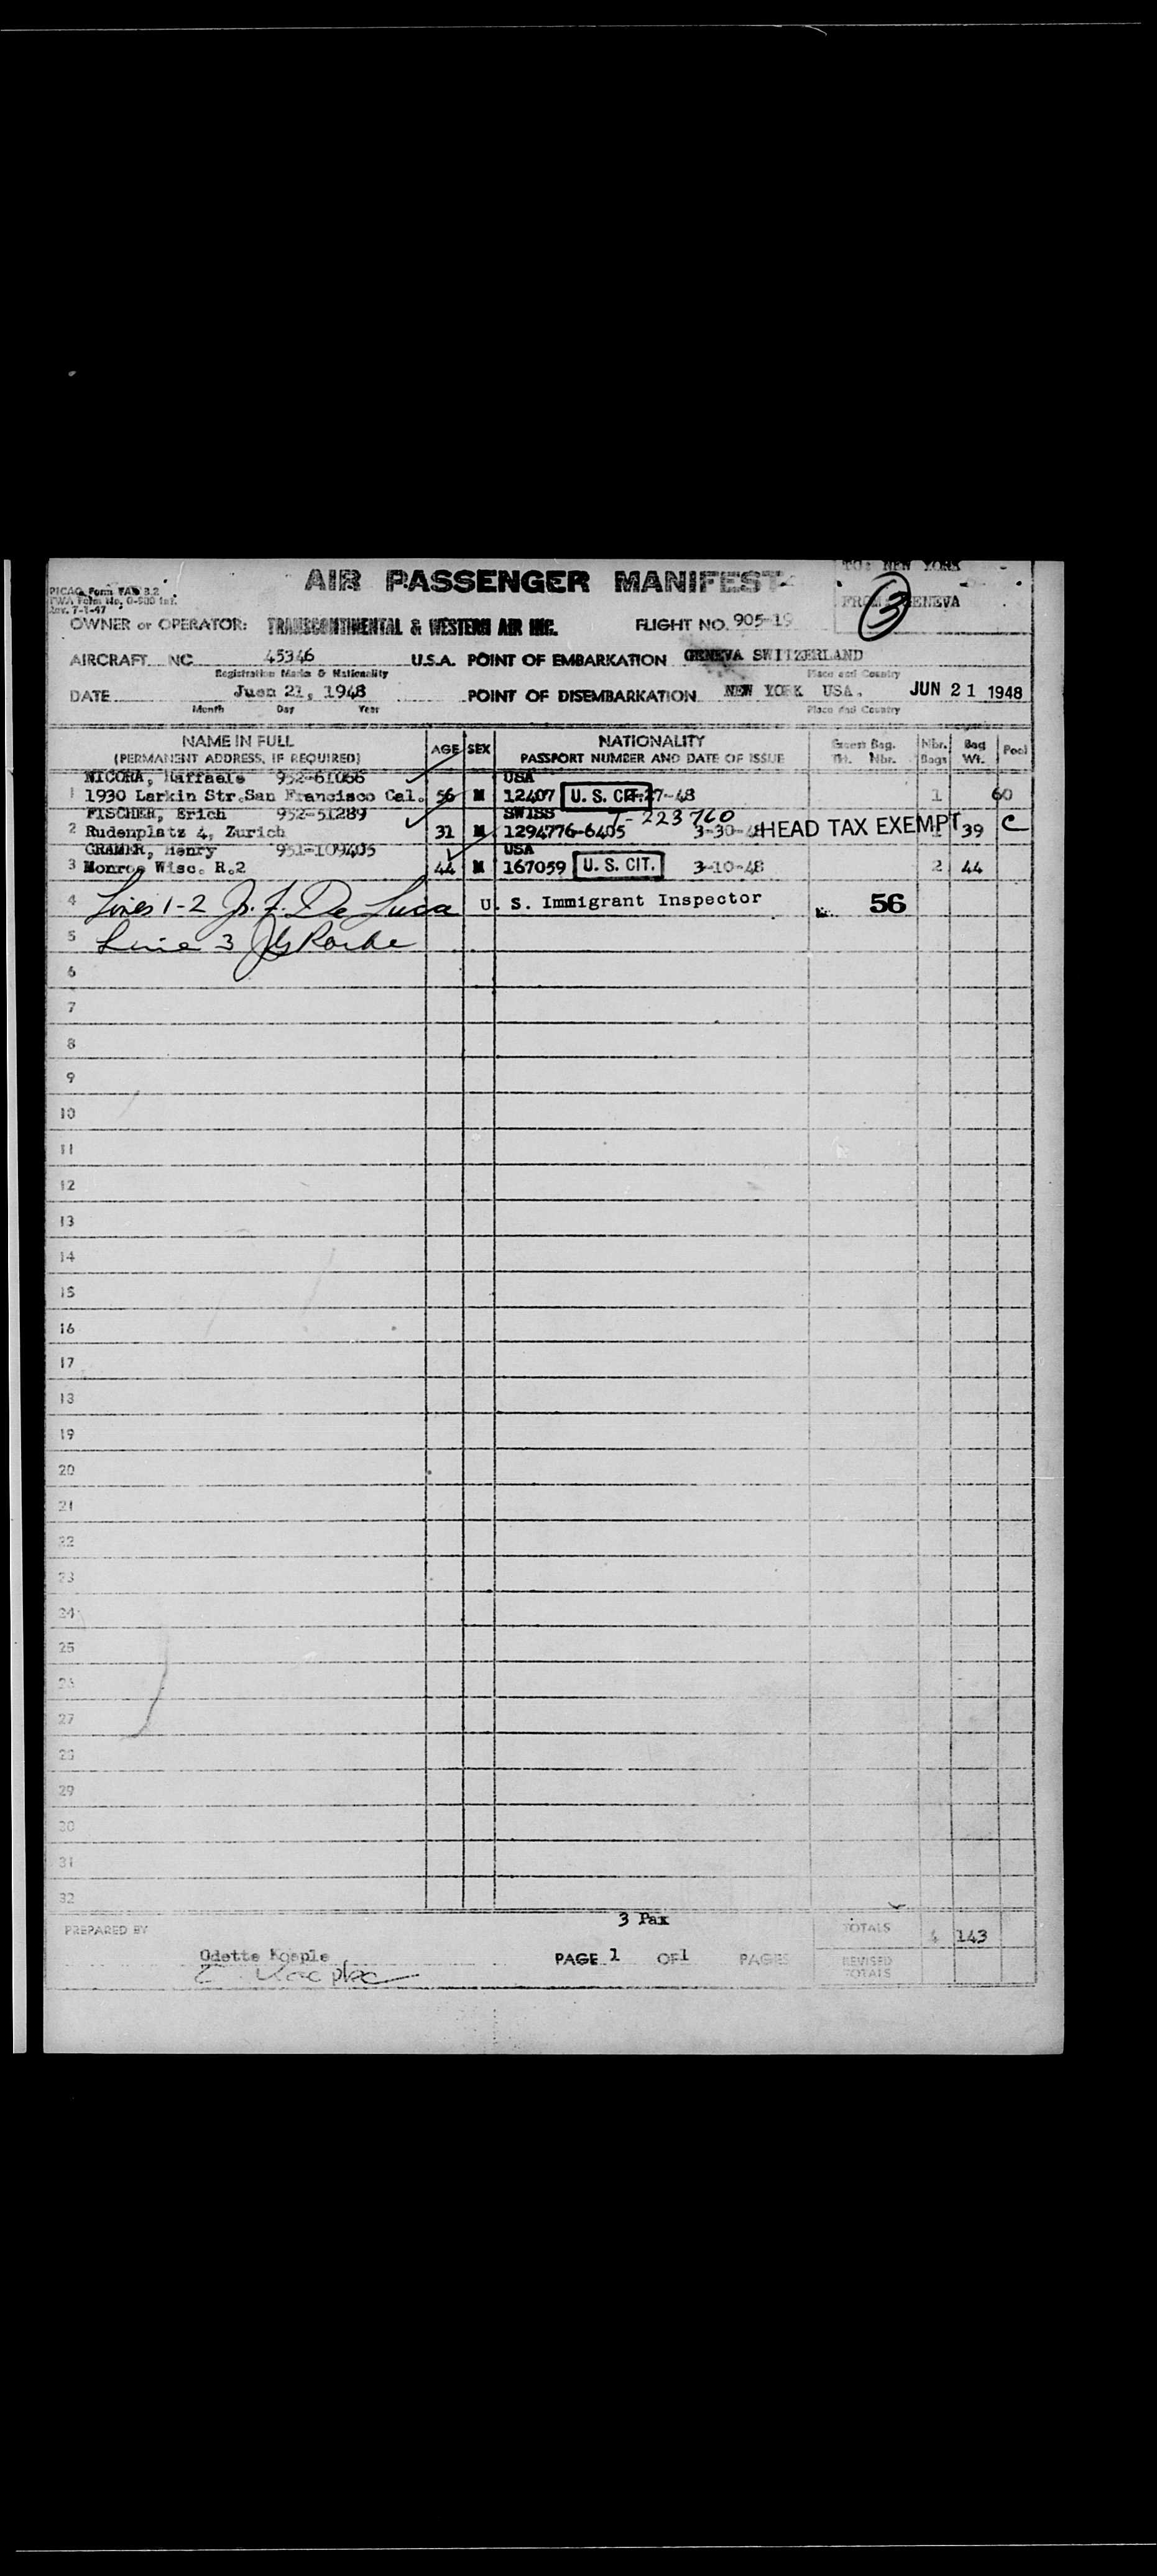 AIR PASSENGER MANIFEST
TO: NEW YORK
FROM GENEVA
3
PICAO Form
TWA Form No. 0-900 Int.
Rev. 7-1-47
OWNER or OPERATOR: TRANSCONTINENTAL & WESTERN AIR INC. FLIGHT NO. 905-19
AIRCRAFT NC 45346 U.S.A. POINT OF EMBARKATION GENEVA SWITZERLAND
Registration Marks & Nationality Place and Country
DATE Juen 21, 1948 POINT OF DISEMBARKATION NEW YORK USA. JUN 21 1948
Month Day Year Place and Country
NAME IN FULL AGE SEX NATIONALITY Nbr. Bag Pool
(PERMANENT ADDRESS, IF REQUIRED) PASSPORT NUMBER AND DATE OF ISSUE Nbr. Bags Wt.
NICORA, Raffaele 952-61066 USA
1 1930 Larkin Str.San Francisco Cal. 56 M 12407 U. S. CIT. 27-48 1 60
FISCHER, Erich 952-51289 SWISS T-223760
2 Rudenplatz 4, Zurich 31 M 1294776-6405 3-30- HEAD TAX EXEMPT 39 C
CRAMER, Henry 951-109405 USA
3 Monroe Wisc. R.2 44 M 167059 U. S. CIT. 3-10-48 2 44
4 Lines 1-2 De Luca U. S. Immigrant Inspector 56
5 Line 3
6
7
8
9
10
11
12
13
14
15
16
17
18
19
20
21
22
23
24
25
26
27
28
29
30
31
32
3 Pax
PREPARED BY TOTALS 4 143
Odette PAGE 1 OF 1 PAGES REVISED
TOTALS